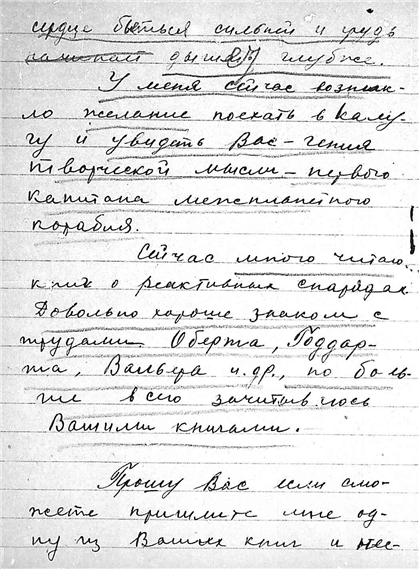 сердце биться сильней и грудь
начинает дышать глубже.
У меня сейчас возник-
ло желание поехать в Калу-
гу и увидеть Вас – гения
творческой мысли – первого
капитана межпланетного
корабля.
Сейчас много читаю
книг о реактивных снарядах
Довольно хорошо знаком с
трудами Оберта, Годдар-
та, Вальера и др., но боль-
ше всего зачитываюсь
Вашими книгами.
Прошу Вас если смо-
жете пришлите мне од-
ну из Ваших книг и нес-